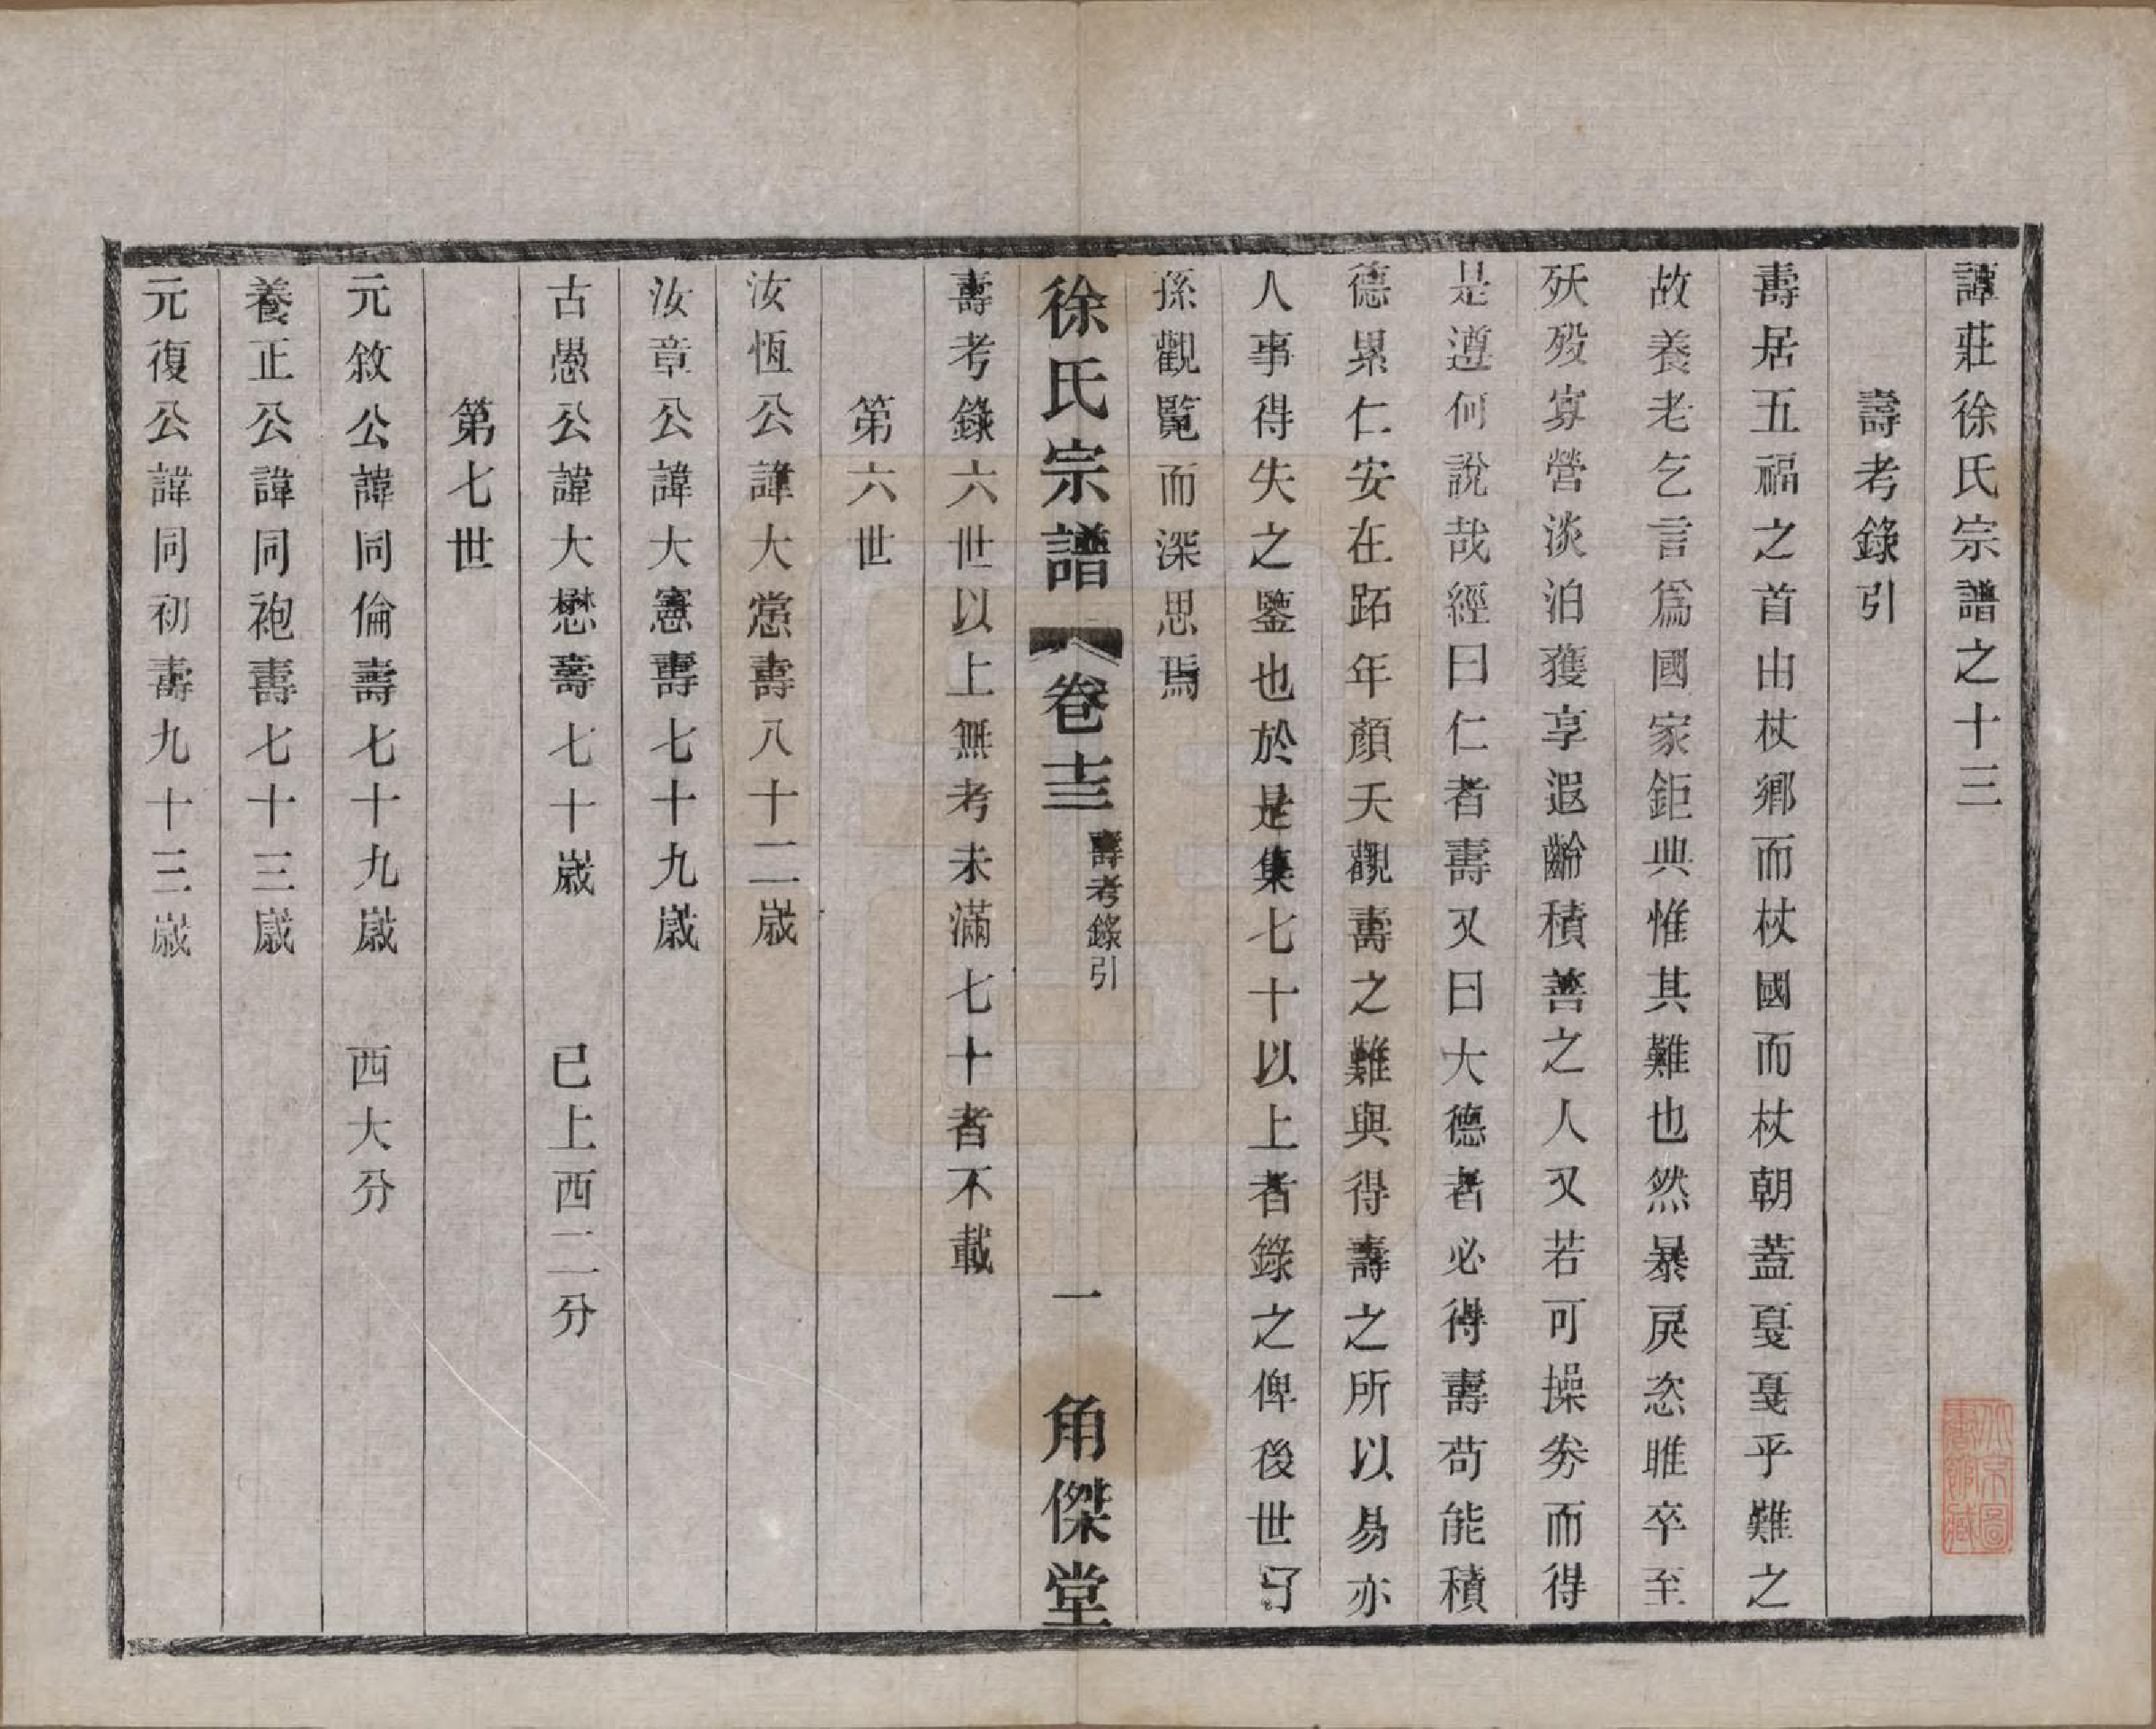 譚莊徐氏宗譜之十三
壽考錄引
壽居五福之首由杖鄉而杖國而杖朝蓋戛戛乎難之
故養老乞言爲國家鉅典惟其難也然暴戾恣睢卒至
殀歿寡營淡泊獲享遐齡積善之人又若可操券而得
是遵何說哉經曰仁者壽又曰大德者必得壽苟能積
德累仁安在跖年顏夭觀壽之難與得壽之所以易亦
人事得失之鑒也於是集七十以上者錄之俾後世子
孫觀覽而深思焉
徐氏宗譜 卷十三 壽考錄引 一 角傑堂
壽考錄六世以上無考未滿七十者不載
第六世
汝恆公諱大鴬壽八十二嵗
汝章公諱大憲壽七十九嵗
古愚公諱大懋壽七十嵗 已上西二分
第七世
元敘公諱同倫壽七十九嵗 西大分
養正公諱同袍壽七十三嵗
元復公諱同初壽九十三嵗